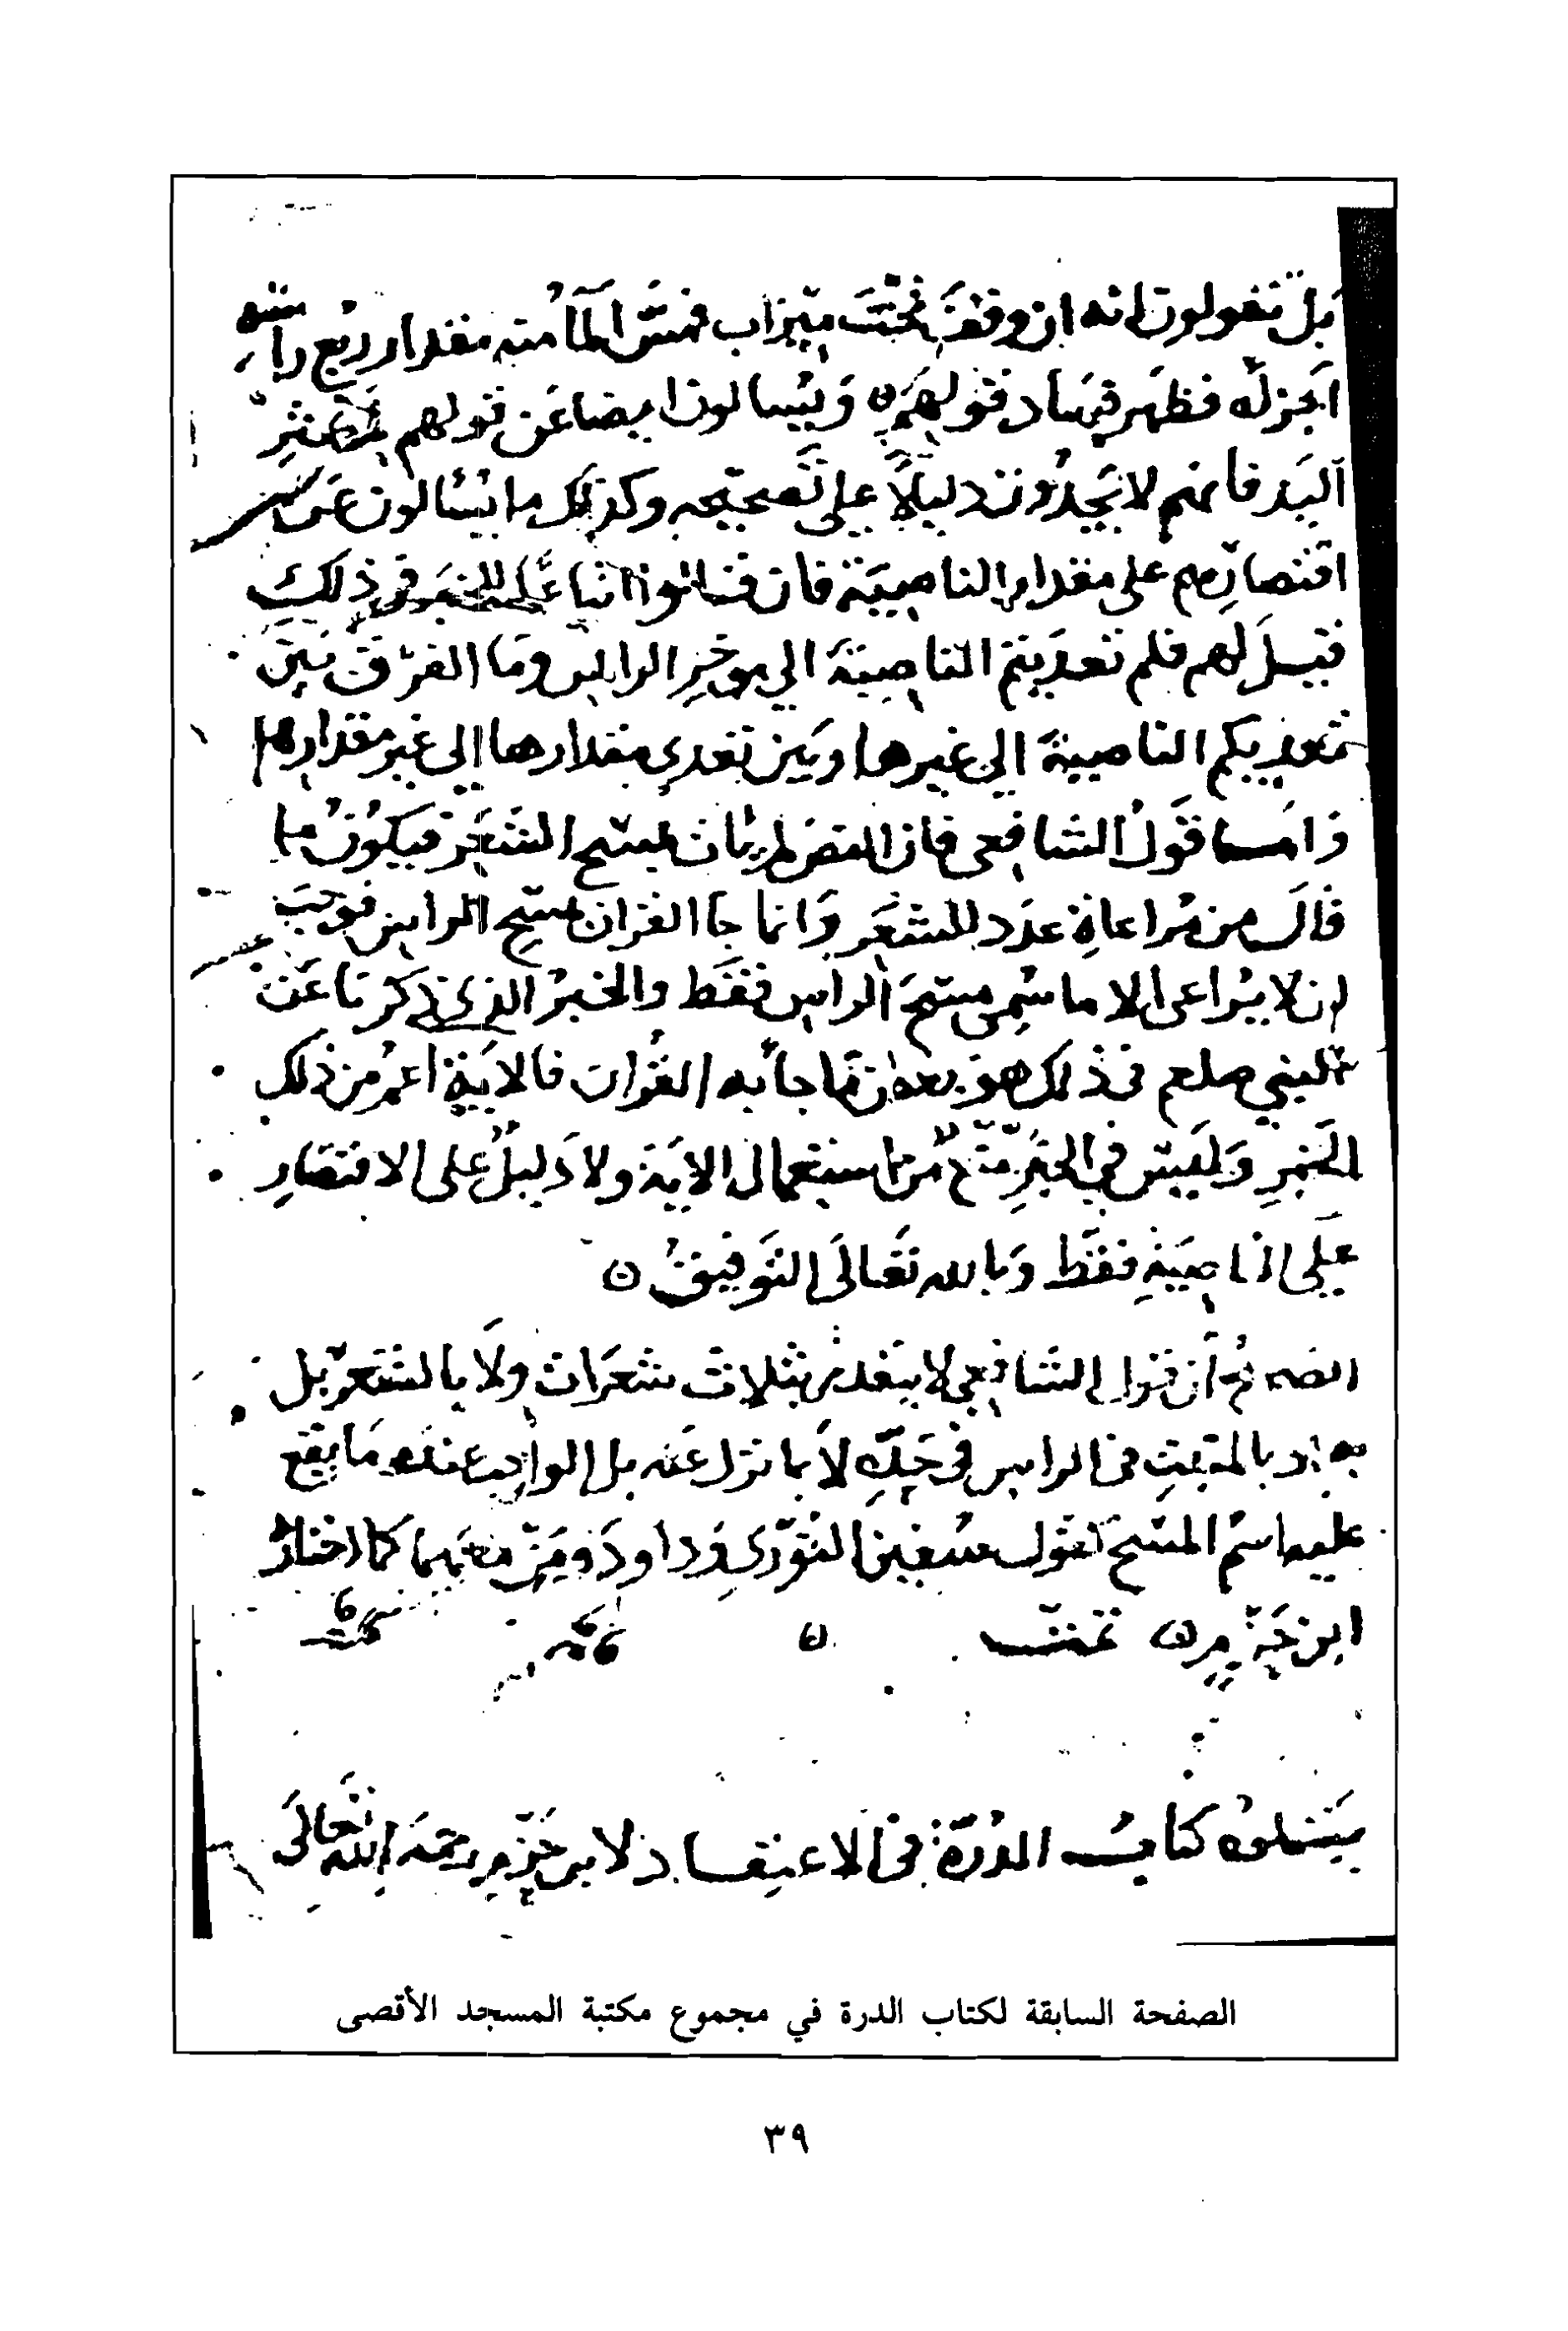 بل يقولون انه ان وقف تحت ميزاب فمس الما منه مقدار ربع راسه
اجزله فظهر فساد قولهم ويسالون ايضا عن قولهم
اليد فانهم لا يجدون دليلا على تصحيحه وكذلك ما يسالون عن
اقتصارهم على مقدار الناصية فان قالوا اتباعا للخبر في ذلك
قيل لهم فلم تعديتم الناصية الى موخر الراس وما الفرق بين
تعديكم الناصية الى غيرها وبين تعدي مقدارها الى غير مقدارها
واما قول الشافعي فان النص لم يات بمسح الشعر فيكون ما
قال من مراعاة عدد للشعر وانما جا القران بمسح الراس فوجب
ان لا يراعى الا ما سمي مسح الراس فقط والخبر الذي ذكرنا عن
النبي صلعم في ذلك هو بعض ما جا به القران فالاية اعم من ذلك
الخبر وليس في الخبر منع من استعمال الاية ولا دليل على الاقتصار
على الناصية فقط وبالله تعالى التوفيق ن
ان قول الشافعي لا يتقدر بثلاث شعرات ولا بالشعر بل
الراس في لا بما نزل عنه بل الواجب عنده ما يقع
عليه اسم المسح كقول سفين الثوري وداود ومن معهما كما اختاره
ابن حزم ن تمت ن
يتلوه كتاب الدرة في الاعتقاد لابن حزم رحمه الله تعالى
الصفحة السابقة لكتاب الدرة في مجموع مكتبة المسجد الأقصى
٣٩